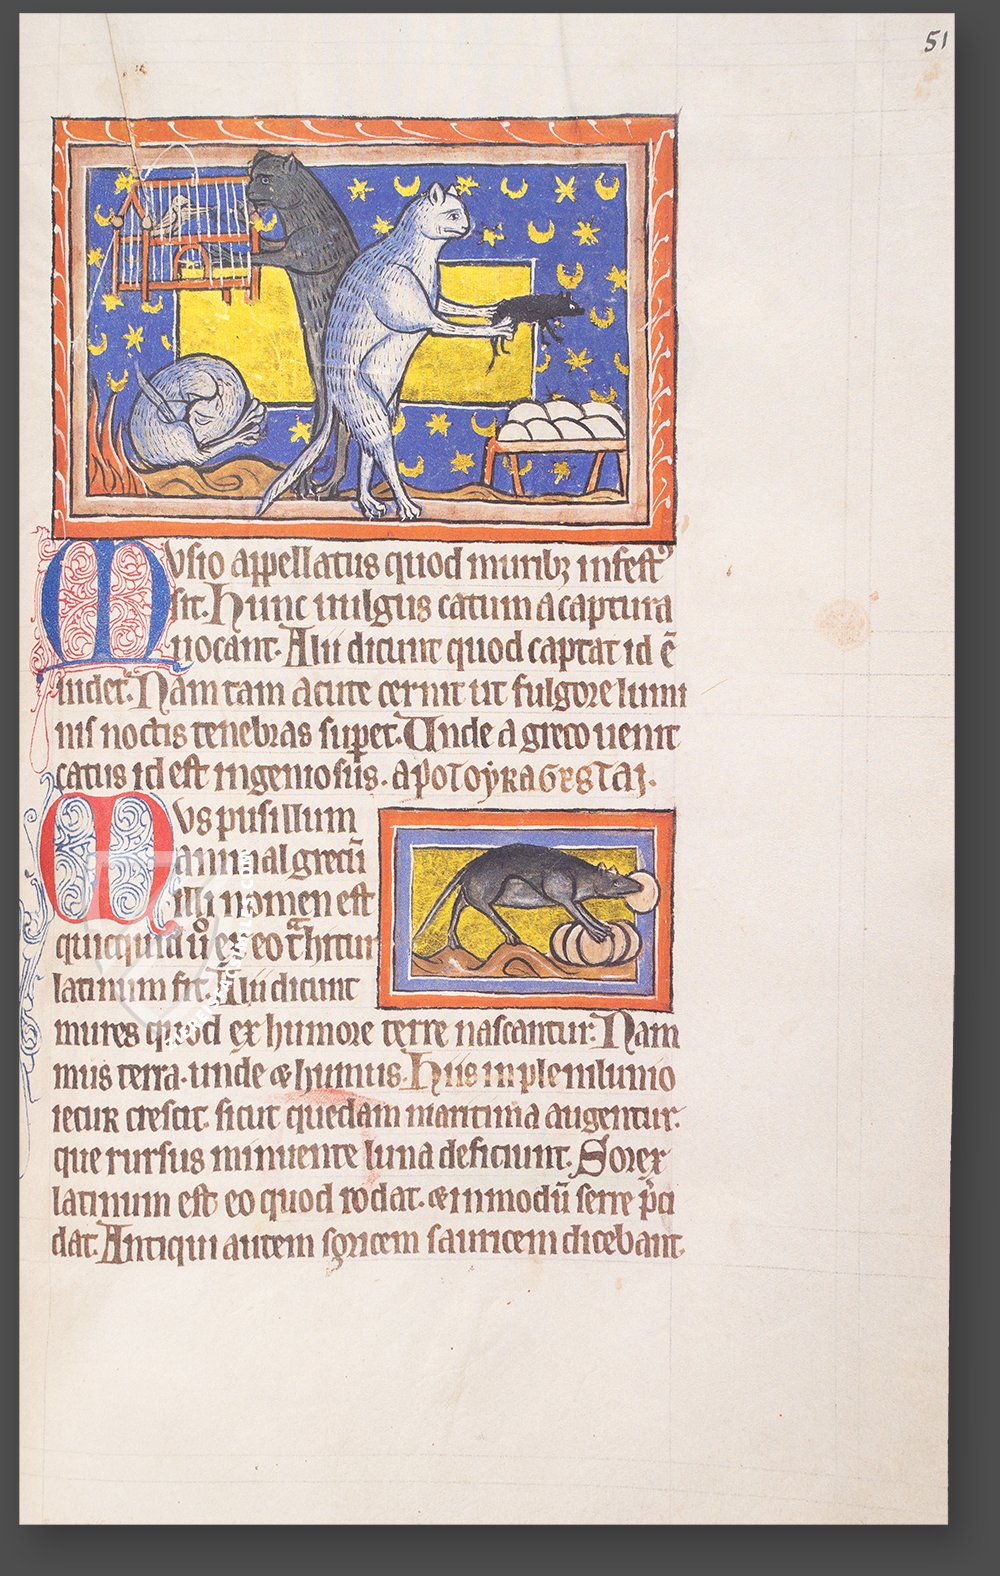 51
Musio appellatus quod murib; infestꝰ
sit. Hunc uulgus catum a captura
uocant. Alii dicunt quod captat id ē
uidet. Nam tam acute cernit ut fulgore lumi
nis noctis tenebras suꝑet. Unde a greco uenit
catus id est ingeniosus. apotoyкagestaj.
Mus pusillum
animal grecū
illi nomen est
quicquid u͛o ex eo tͣhitur
latinum fit. Alii dicunt
mures quod ex humore terre nascantur. Nam
mus terra. unde & humus. Hiis in plenilunio
iecur crescit. sicut quedam maritima augentur.
que rursus minuente luna deficiunt. Sorex
latinum est eo quod rodat. & in modū serre p̄ci
dat. Antiqui autem soricem sauricem dicebant.